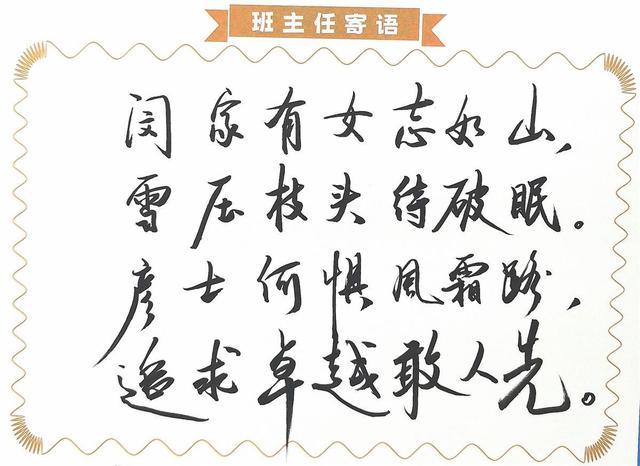 班主任寄语
闵家有女志如山,
雪压枝头待破眠。
彦士何惧风霜路,
追求卓越敢人先。